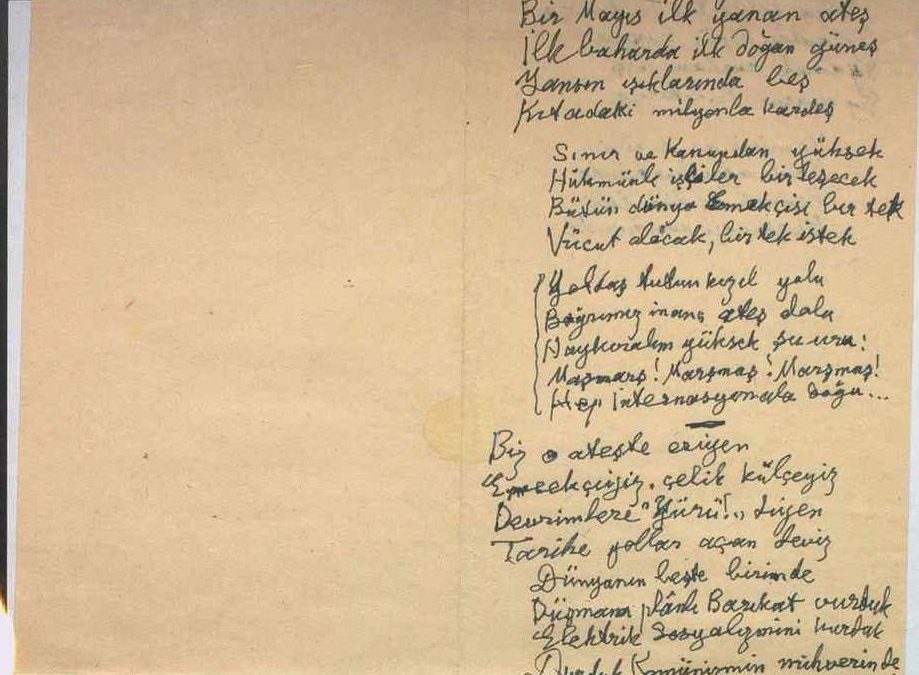 Bir Mayıs ilk yanan ateş
İlk baharda ilk doğan güneş
Yansın ışıklarında beş
Kıtadaki milyonla kardeş
Sınır ve Kanundan yüksek
Hükmünle işçiler birleşecek
Bütün dünya Emekçisi bir tek
Vücut olacak, bir tek istek
Yoldaş tutun kızıl yolu
Bağrımız inanç ateş dolu
Haykıralım yüksek şu
Marşmarş! Marşmaş! Marşmaş!
Hep İnternasyonala doğu...
Biz o ateşte eriyen
Emekçiyiz, çelik külçeyiz
Devrimlere "Yürü!" diyen
Tarihe yollar açan deviz
Dünyanın beşte birinde
Düşmana plânlı Barikat vurduk
Elektrik Sosyalizmini kurduk
Komünizmin mihverinde